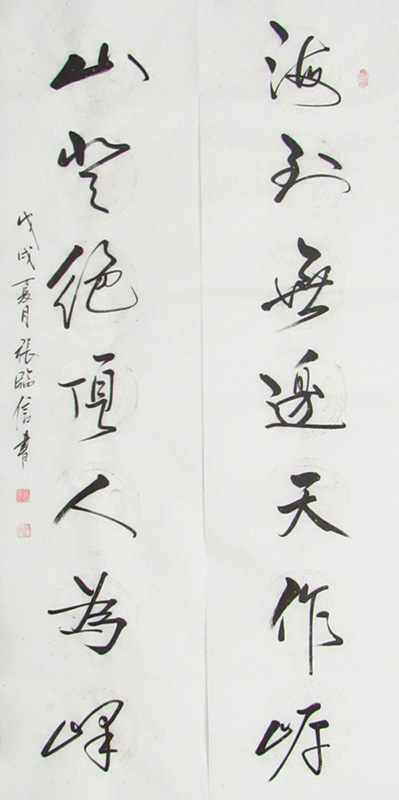 海到無邊天作岸
山登絶頂人為峰
戊戌夏月張臨信書